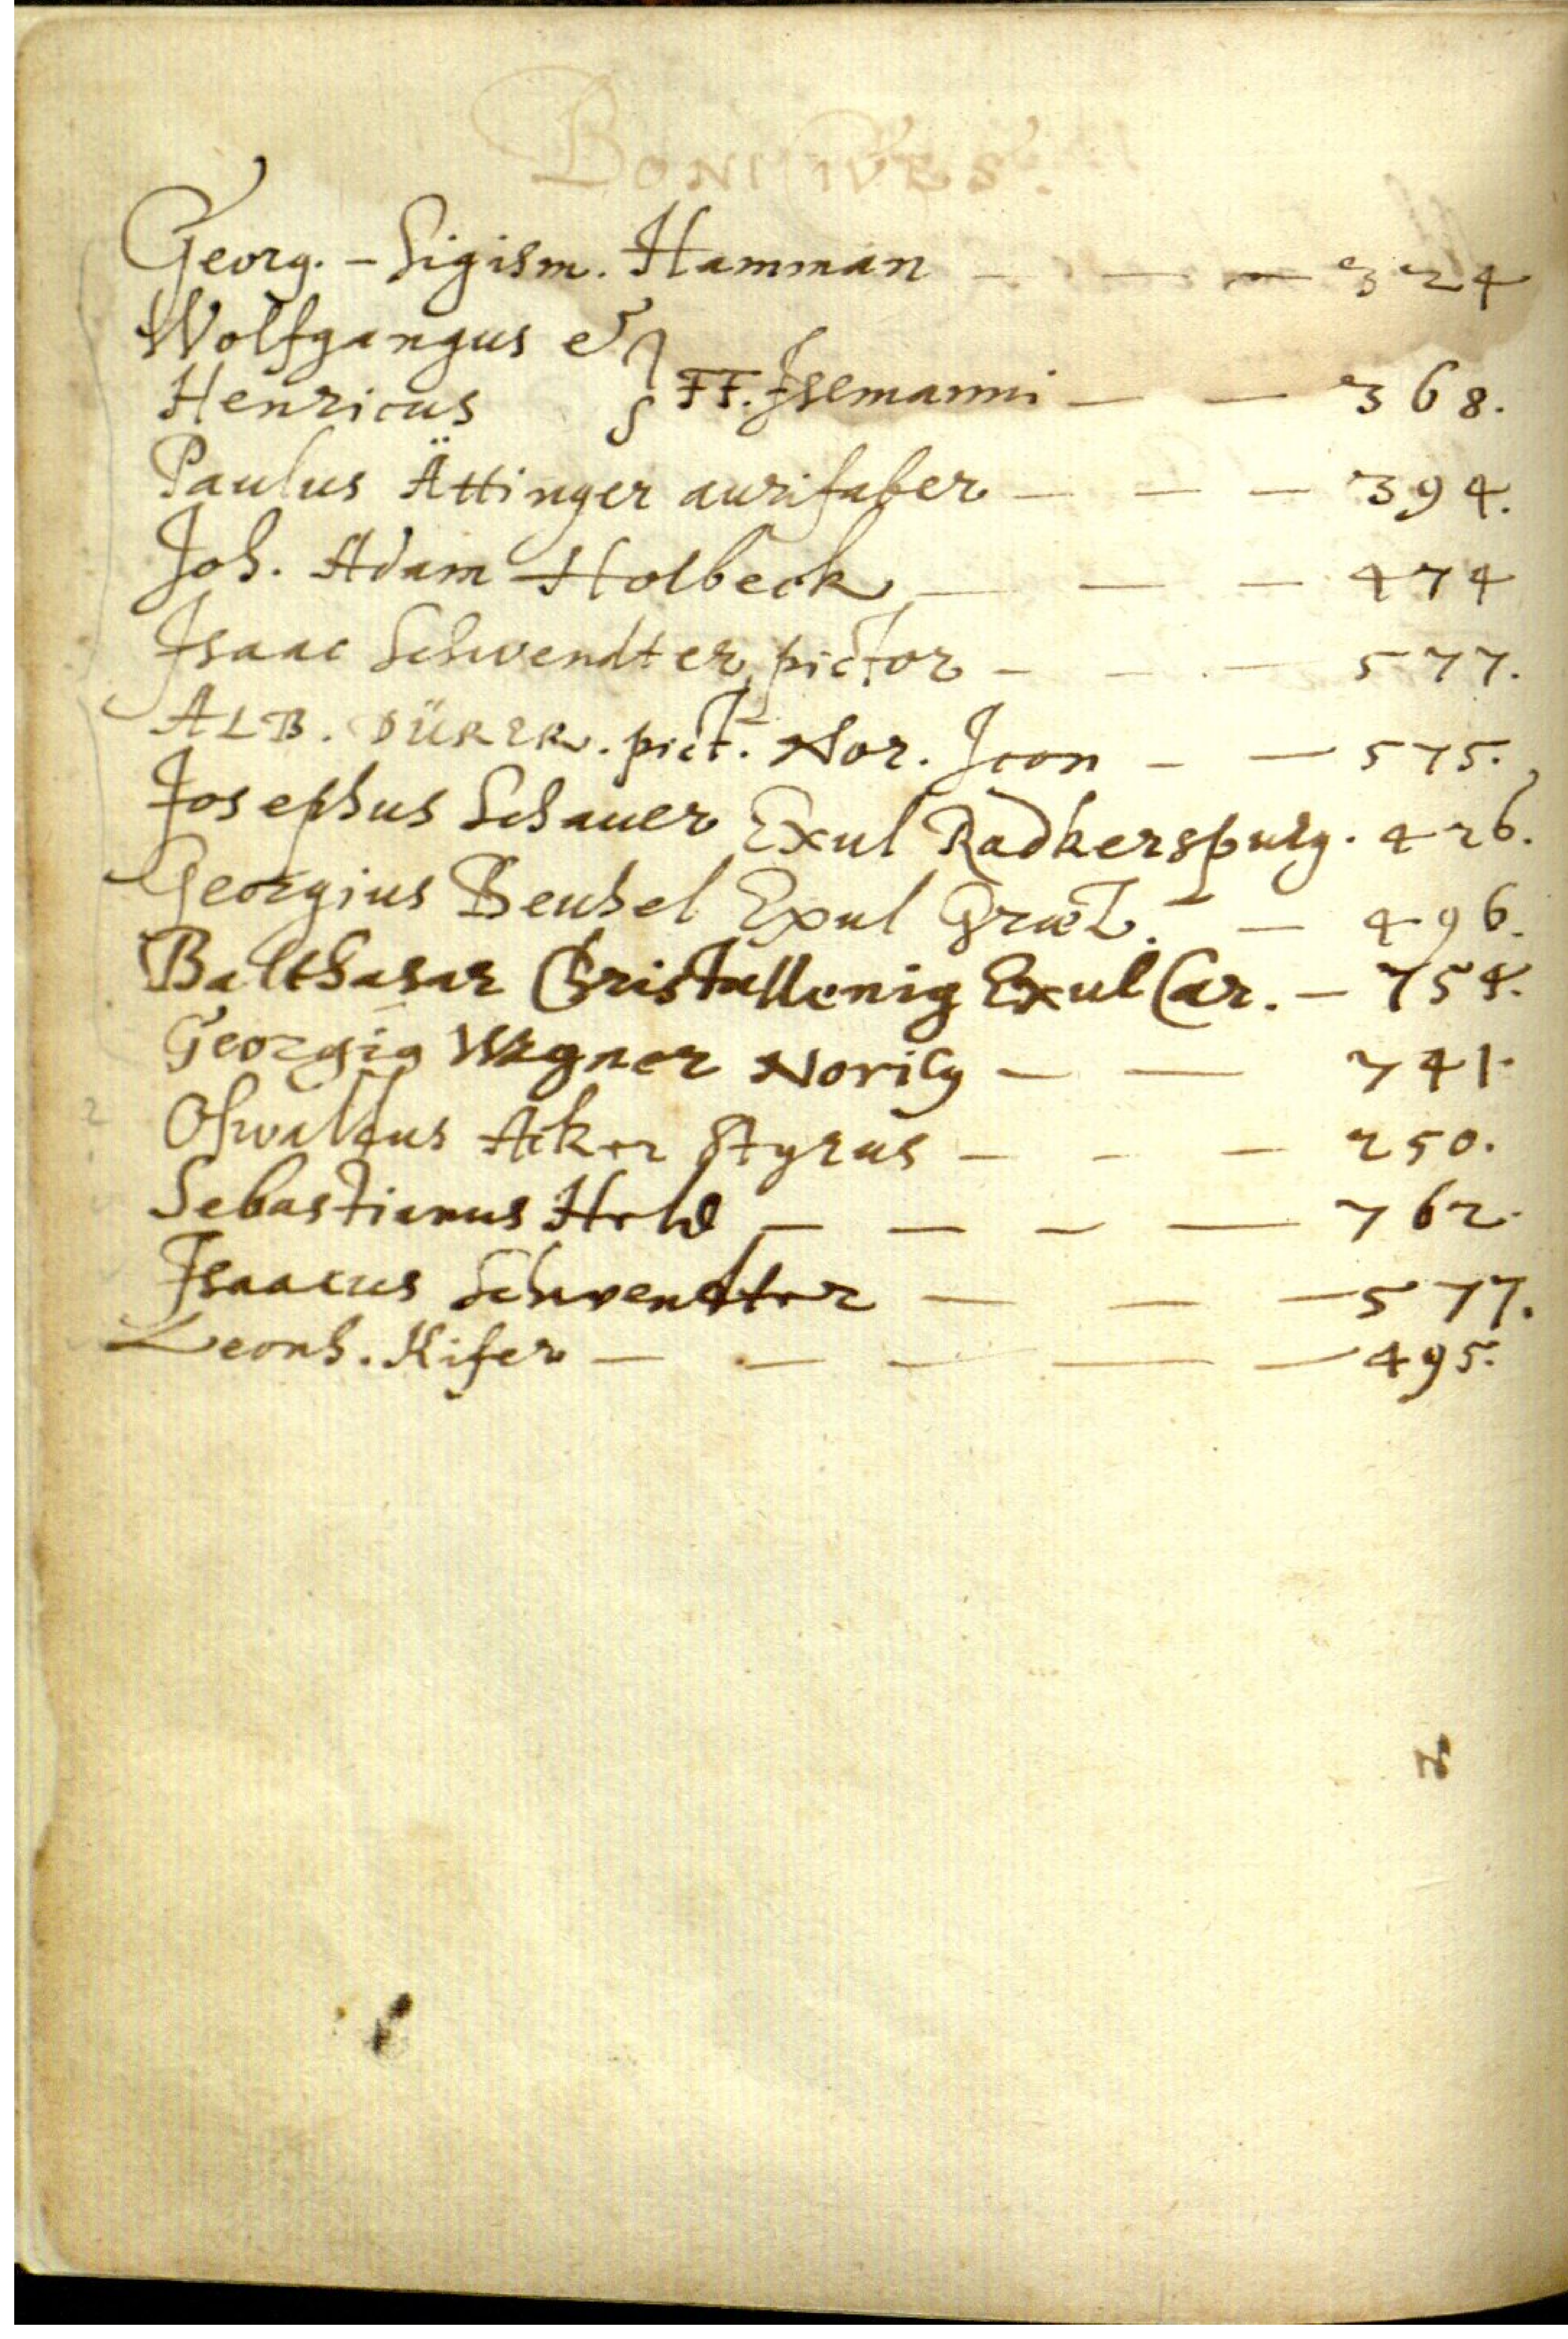 BONI CIVES.
Georg. - Sigism. Hamman - - - 324
Wolfgangus &
Henricus FF. Isemanni - - 368.
Paulus Ättinger aurifaber - - - 394.
Joh. Adam Holbeck - - - 474
Isaac Schwendter pictor - - - 577.
ALB. DÜRER. pict. Nor. Icon - - 575.
Josephus Schauer Exul Radkerspurg. 426.
Georgius Beuhel Exul Græt. - 496.
Balthasar Christallenig Exul Car. - 754.
Georgig Wagner Norilg - - 741.
Oswaldus Aker Styrus - - - 250.
Sebastianus Held - - - - 762.
Isaacus Schwendter - - - 577.
Leonh. Kifer - - - - - 495.